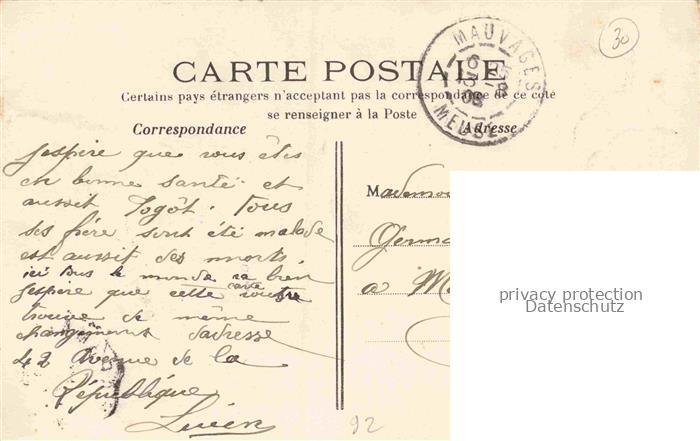 30
MAUVAGES
MEUSE
CARTE POSTALE
Certains pays étrangers n'acceptant pas la correspondance de ce côté
se renseigner à la Poste
Correspondance
Adresse
Jespire que vous êtes
en bonne santé et
aussit Togôt. Tous
ses frère sont été malade
est aussit des morts
ici tous le monde va bien
Jespire que cette carte
trouve de même
changement dadresse
42 Avenue de la
République
Lucien
92
Mademoi
Germa
a M
privacy protection
Datenschutz